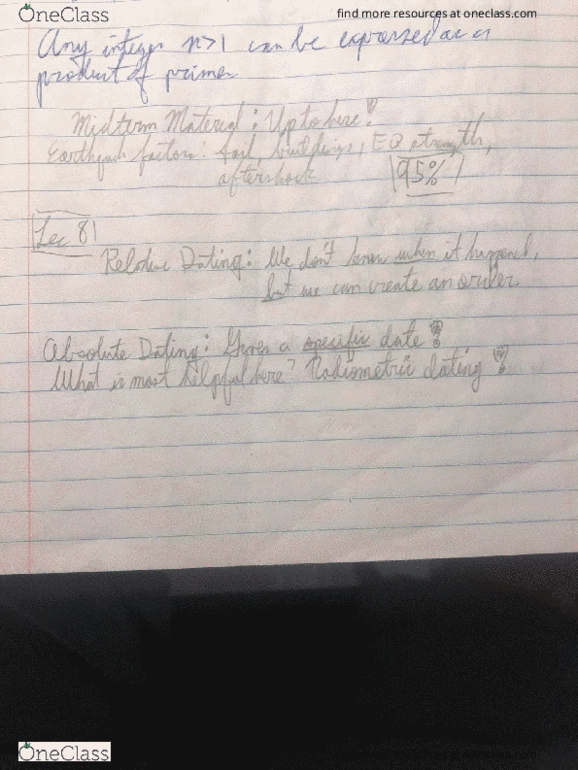 OneClass
find more resources at oneclass.com
Any integer n>1 can be expressed as a
product of primes
Midterm Material: Up to here!
Earthquake factors: Soil, buildings, EQ strength,
aftershock
95%
Lec 8
Relative Dating: We don't know when it happened,
but we can create an order.
Absolute Dating: Gives a specific date!
What is most helpful here? Radiometric dating!
OneClass